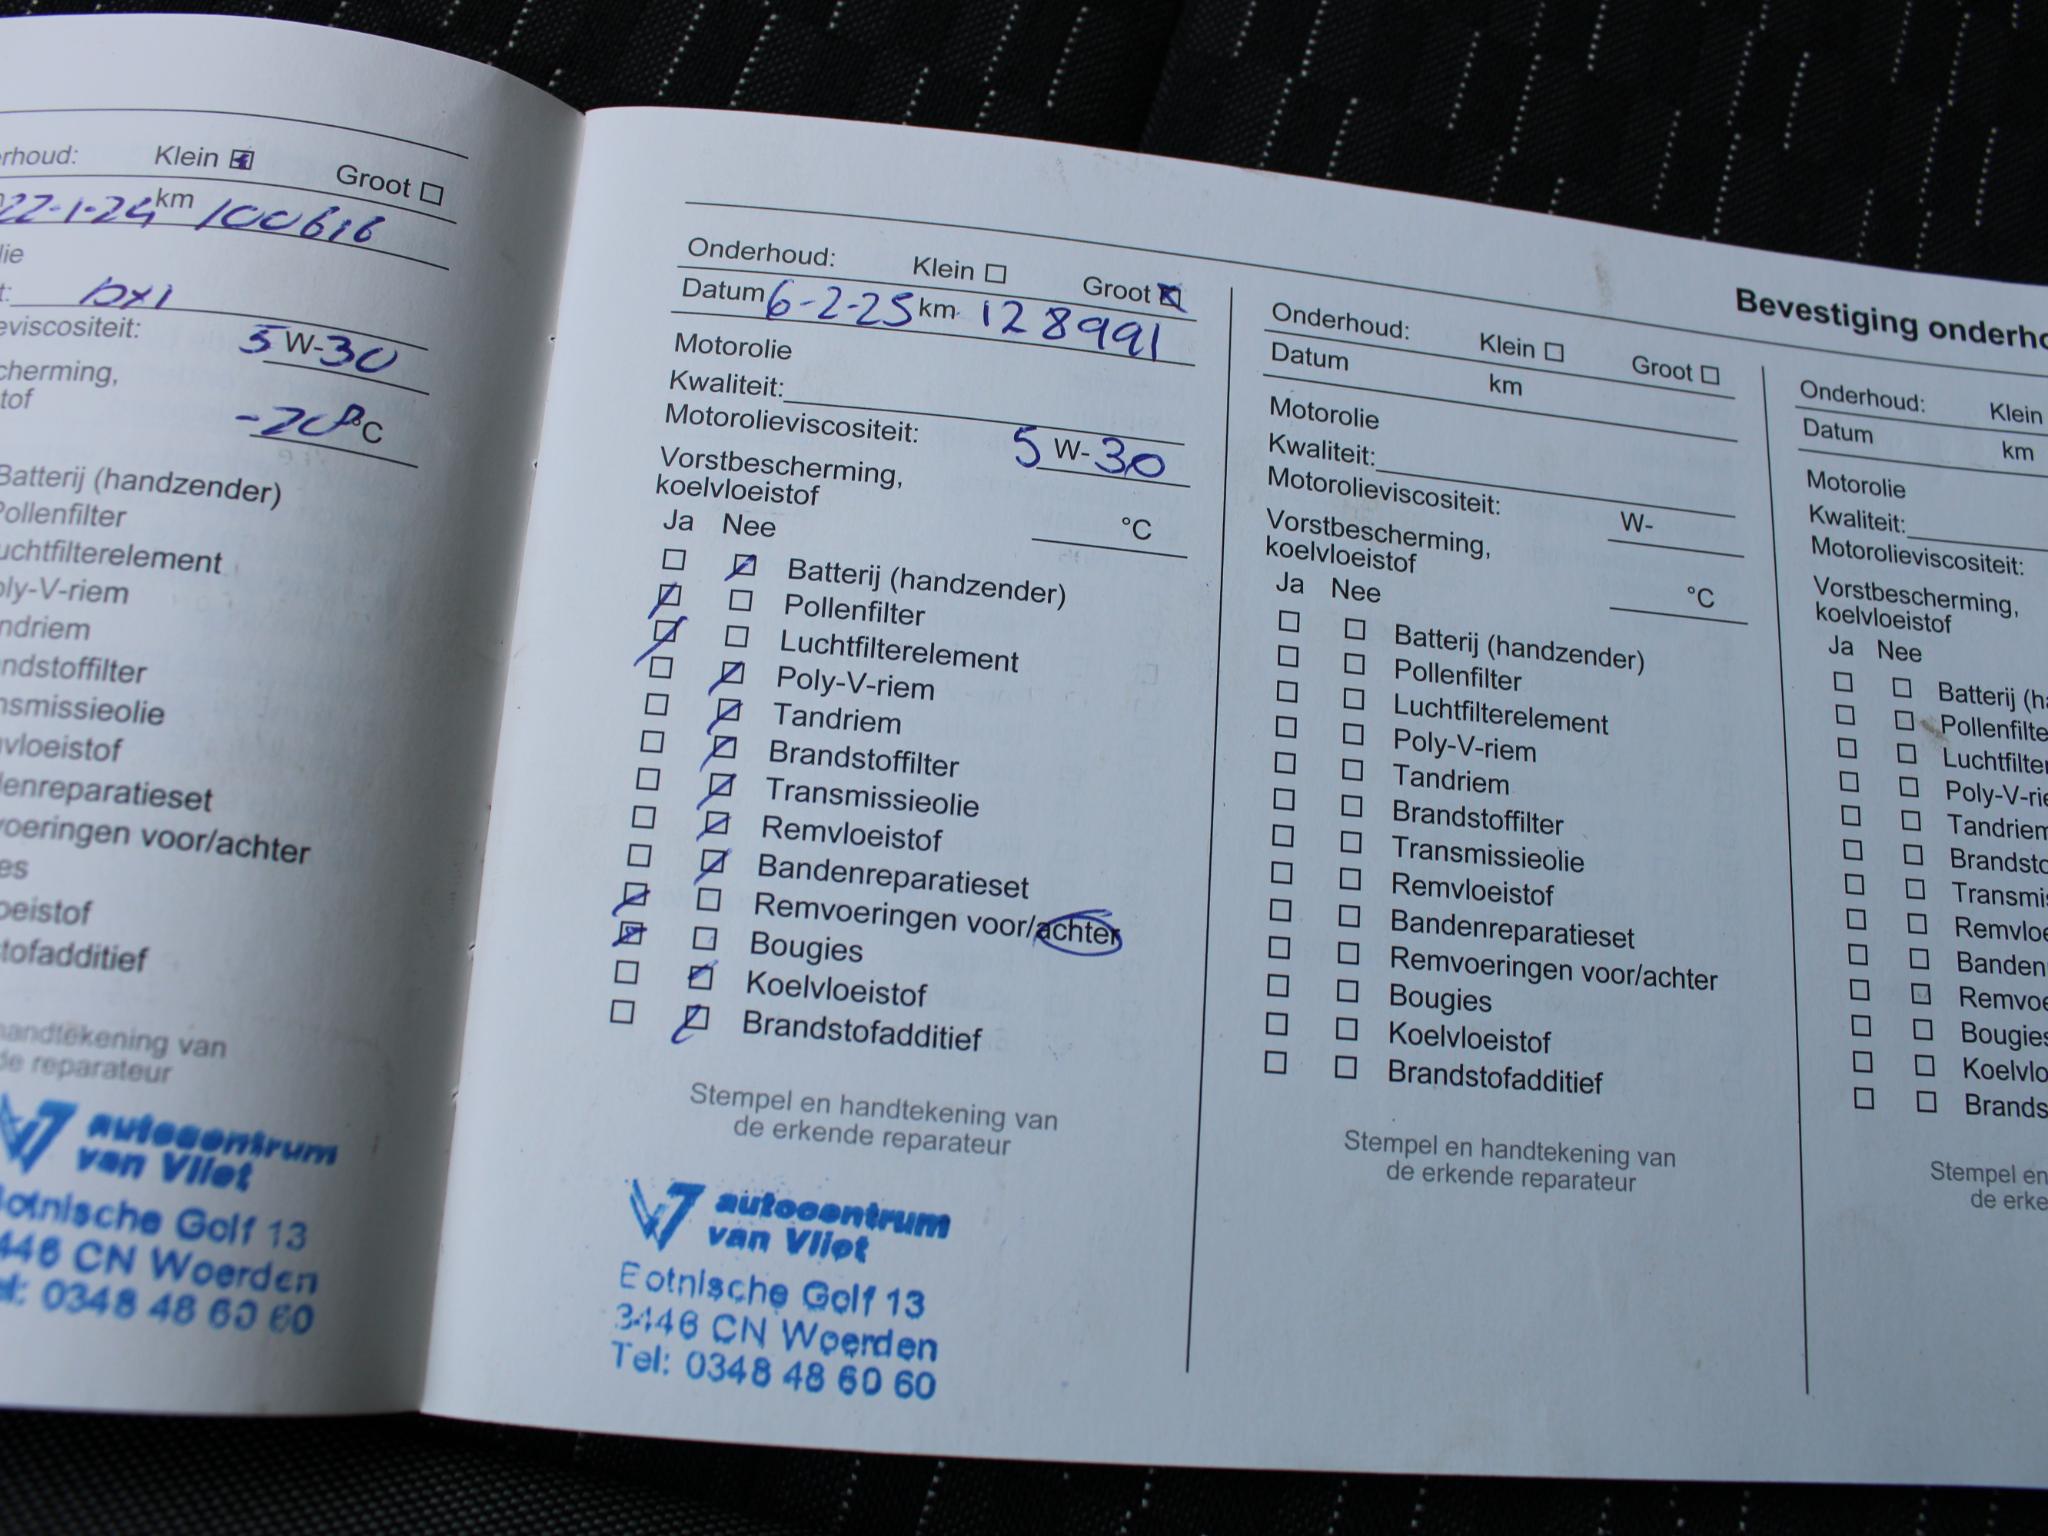 rhoud: Klein Groot
22-1-24 km 100616
lie
t:
eviscositeit: 5 W-30
cherming,
tof -20 °C
Batterij (handzender)
Pollenfilter
uchtfilterelement
oly-V-riem
ndriem
ndstoffilter
nsmissieolie
vloeistof
denreparatieset
voeringen voor/achter
es
oeistof
stofadditief
handtekening van
de reparateur
autocentrum
van Vliet
Botnische Golf 13
446 CN Woerden
el: 0348 48 60 60
Onderhoud: Klein Groot
Datum 6-2-25 km 128991
Motorolie
Kwaliteit:
Motorolieviscositeit: 5 W-30
Vorstbescherming,
koelvloeistof °C
Ja Nee
Batterij (handzender)
Pollenfilter
Luchtfilterelement
Poly-V-riem
Tandriem
Brandstoffilter
Transmissieolie
Remvloeistof
Bandenreparatieset
Remvoeringen voor/achter
Bougies
Koelvloeistof
Brandstofadditief
Stempel en handtekening van
de erkende reparateur
autocentrum
van Vliet
Botnische Golf 13
3446 CN Woerden
Tel: 0348 48 60 60
Bevestiging onderho
Onderhoud: Klein Groot
Datum km
Motorolie
Kwaliteit:
Motorolieviscositeit: W-
Vorstbescherming,
koelvloeistof °C
Ja Nee
Batterij (handzender)
Pollenfilter
Luchtfilterelement
Poly-V-riem
Tandriem
Brandstoffilter
Transmissieolie
Remvloeistof
Bandenreparatieset
Remvoeringen voor/achter
Bougies
Koelvloeistof
Brandstofadditief
Stempel en handtekening van
de erkende reparateur
Onderhoud: Klein
Datum km
Motorolie
Kwaliteit:
Motorolieviscositeit:
Vorstbescherming,
koelvloeistof
Ja Nee
Batterij (ha
Pollenfilte
Luchtfilter
Poly-V-rie
Tandriem
Brandsto
Transmis
Remvloe
Banden
Remvoe
Bougies
Koelvlo
Brands
Stempel en
de erke